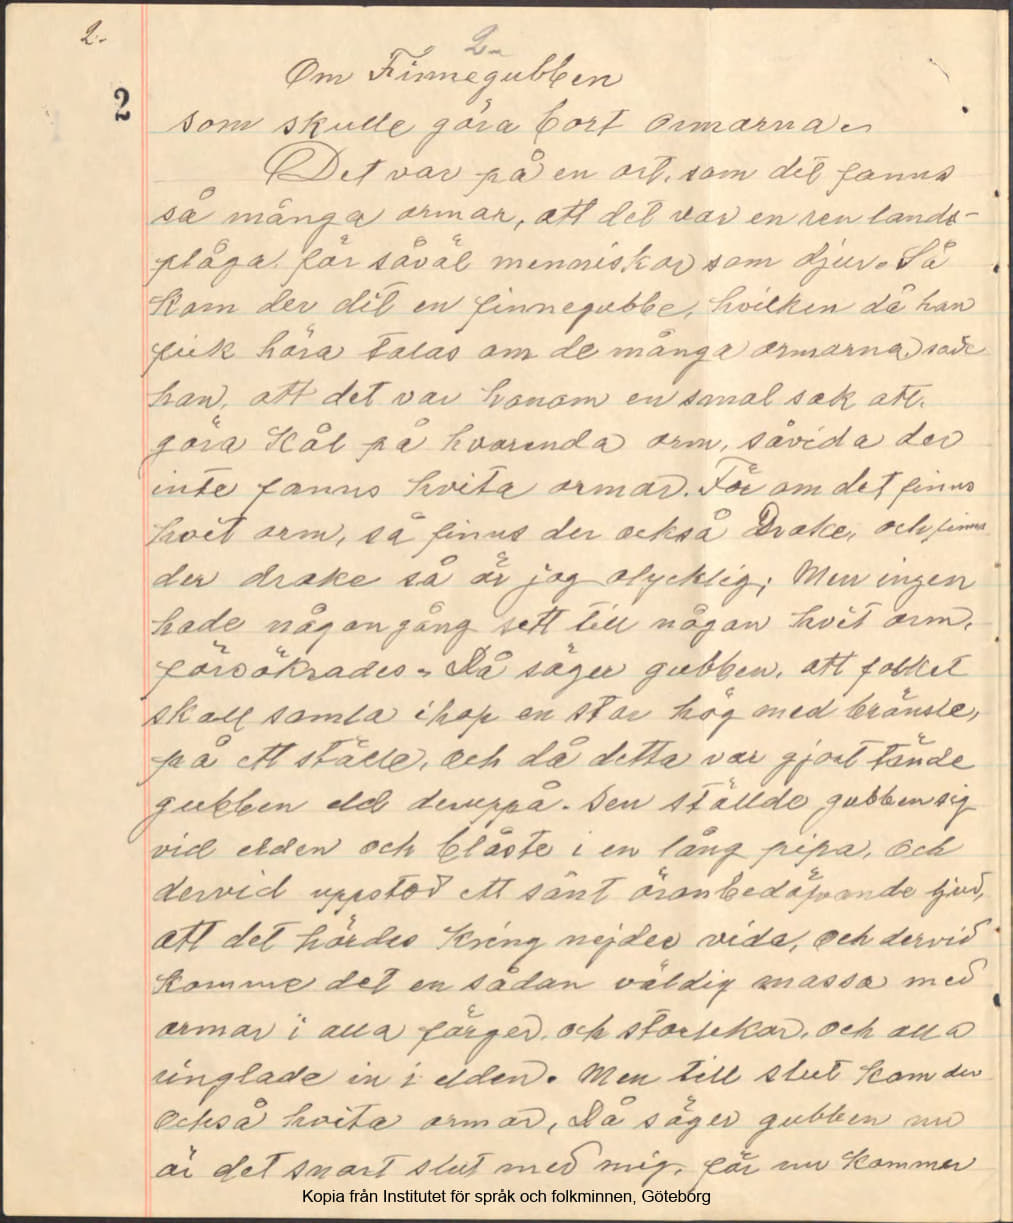 2.
2.
2
Om Finnegubben
som skulle göra bort ormarna.
Det var på en ort, som det fanns
så många ormar, att det var en ren lands-
plåga för såväl menniskor som djur. Så
kom der dit en finnegubbe, hvilken då han
fick höra talas om de många ormarna, sade
han, att det var honom en smal sak att
göra kål på hvarenda orm, såvida der
inte fanns hvita ormar. För om det finns
hvit orm, så finns der också Drake, och finns
der drake så är jag olycklig; Men ingen
hade någongång sett till någon hvit orm,
försäkrades. Då säger gubben, att folket
skall samla ihop en stor hög med bränsle,
på ett ställe, och då detta var gjort tände
gubben eld deruppå. Sen ställde gubben sig
vid elden och blåste i en lång pipa, och
dervid uppstod ett sånt öronbedöfvande ljud,
att det hördes kring nejder vida, och dervid
komme det en sådan väldig massa med
ormar i alla färger, och storlekar, och alla
ringlade in i elden. Men till slut kom der
också hvita ormar, Då säger gubben nu
är det snart slut med mig, för nu kommer
Kopia från Institutet för språk och folkminnen, Göteborg